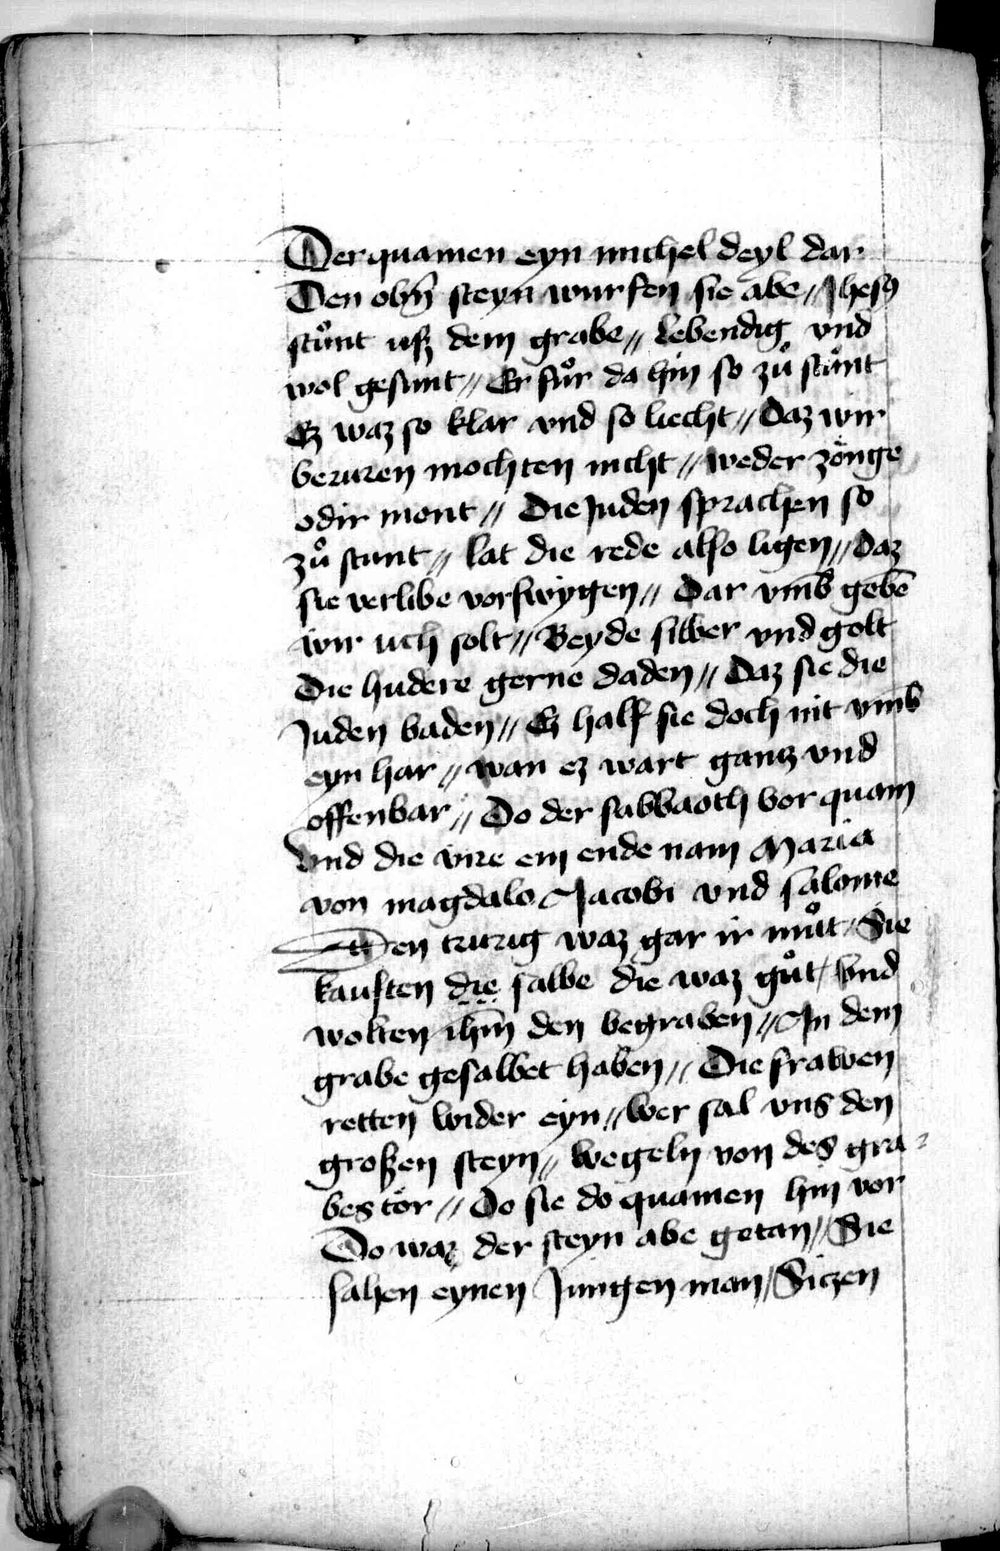 Der quamen eyn michel deyl dar
Den obn̄ steyn wurfen sie abe // Jhesꝰ
stůnt uſz dem grabe // Lebendig vnd
wol gesunt // Er fůr da hin so zů stůnt
Ez waz so klar vnd so liecht // Daz wir
beruren mochten nicht // weder zönge
odir mont // Die Juden sprachen so
zů stunt // lat die rede also ligen // Daz
sie verlibe vorswygen // Dar vm̄b gebē
wir uch solt // Beyde silber vnd golt
Die hudere gerne daden // Daz sie die
Juden baden // Ez half sie doch nit vm̄b
eyn har // wan ez wart gantz vnd
offenbar // Do der sabbaoth vor quam
Vnd die vire ein ende nam Maria
von magdalo Jacobi vnd salome
Den trurig waz gar ir můt / Sie
kauften die salbe die waz gůt / Vnd
wolten ihm̄ den begraben // In dem
grabe gesalbet haben // Die frawen
retten wider eyn // Wer sal vns den
großen steyn // Wegeln von des gra⸗
bes tör // Do sie do quamen hin vor
Do waz der steyn abe getan // Sie
sahen eynen Jungen man / Siczen